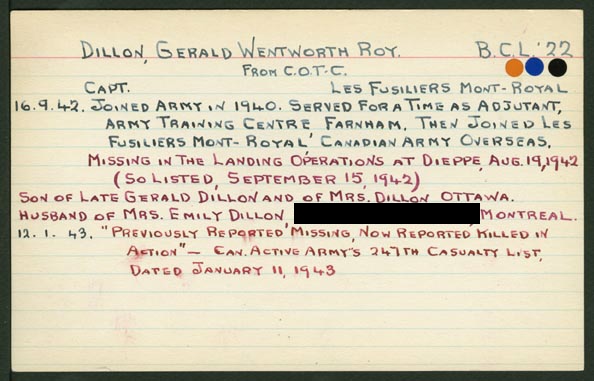 DILLON, GERALD WENTWORTH ROY. B.C.L. '22
FROM C.O.T.C.
CAPT. LES FUSILIERS MONT-ROYAL
16.9.42. JOINED ARMY IN 1940. SERVED FOR A TIME AS ADJUTANT,
ARMY TRAINING CENTRE FARNHAM, THEN JOINED LES
FUSILIERS MONT-ROYAL' CANADIAN ARMY OVERSEAS,
MISSING IN THE LANDING OPERATIONS AT DIEPPE AUG.19,1942
(SO LISTED, SEPTEMBER 15, 1942)
SON OF LATE GERALD DILLON AND OF MRS. DILLON OTTAWA.
HUSBAND OF MRS. EMILY DILLON , MONTREAL.
12.1.43. "PREVIOUSLY REPORTED MISSING, NOW REPORTED KILLED IN
ACTION" — CAN. ACTIVE ARMY'S 247TH CASUALTY LIST,
DATED JANUARY 11, 1943